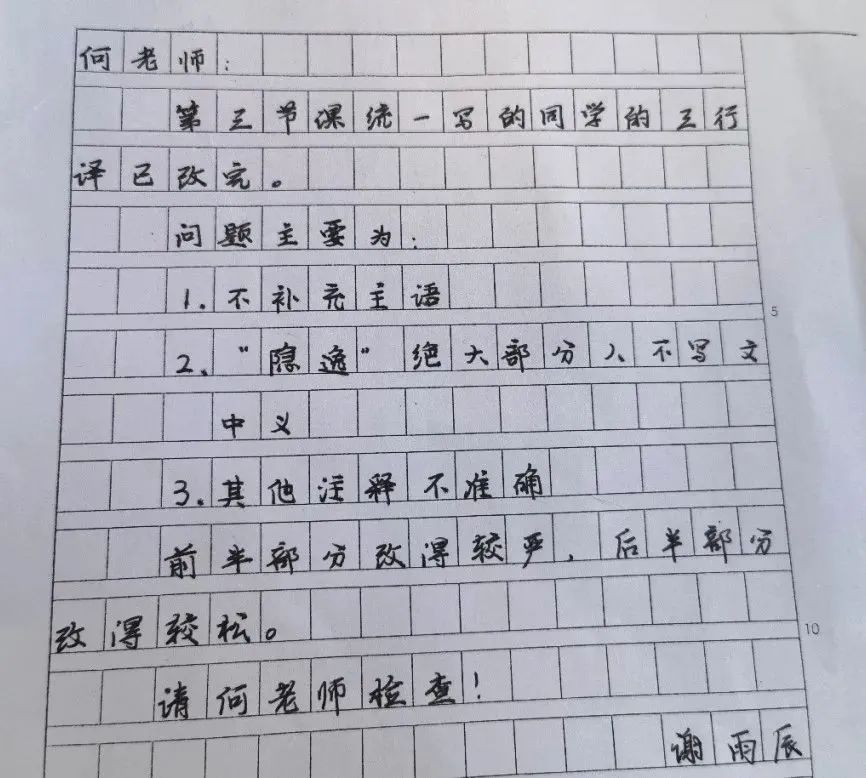 何老师：
第三节课统一写的同学的三行
译已改完。
问题主要为：
1.不补充主语
5
2、“隐逸”绝大部分人不写文
中义
3.其他注释不准确
前半部分改得较严，后半部分
改得较松。
10
请何老师检查！
谢雨辰